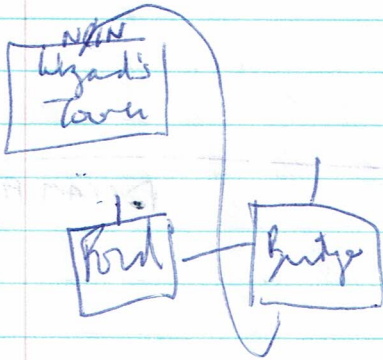 Wizard's
Tower
Ford
Bridge